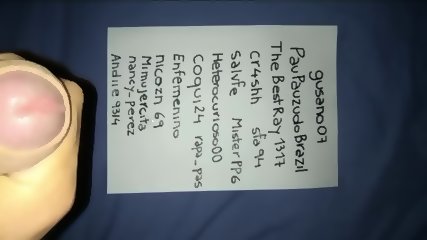 gusano07
PauPauzudoBrazil
The BestRay 1317
cr4shh sfa94
Salvfe MisterPPG
Heterocurioso00
Coqui24 rapa_pas
Enfemenino
nicozn 69
Mimujercita
nancy-perez
Andiie 9314